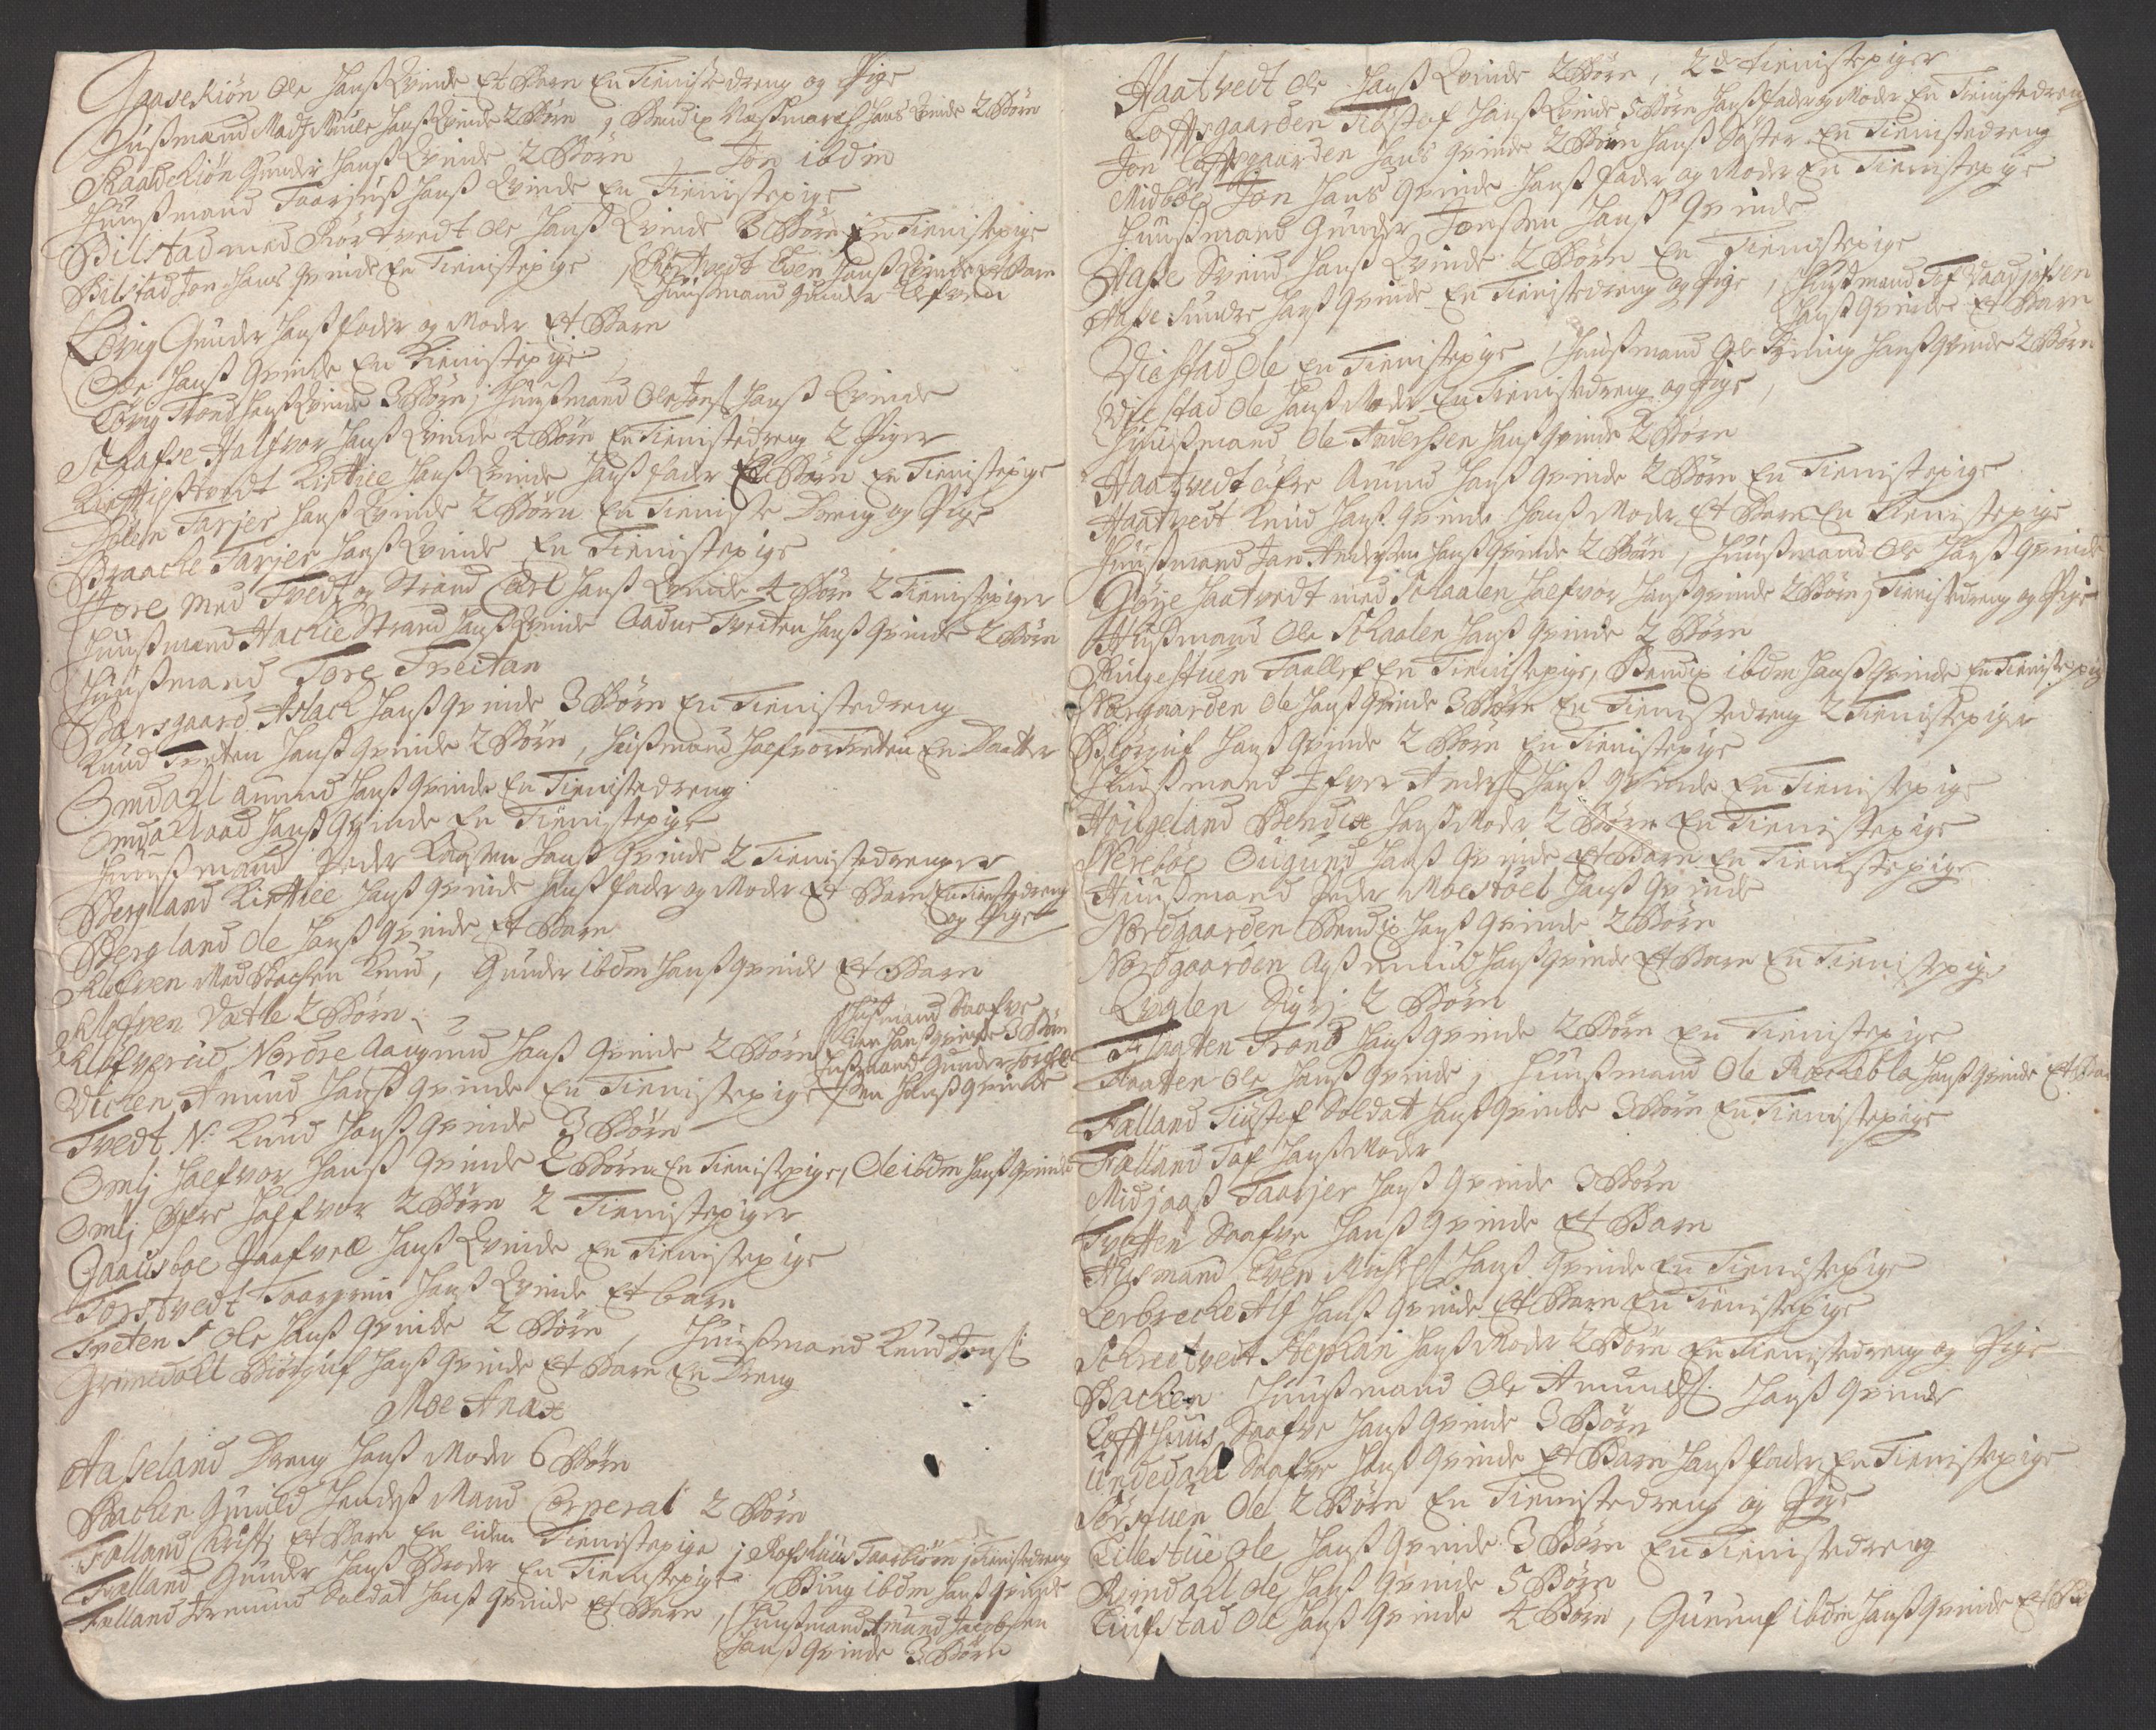 Gaasekiön Ole Hanß Qvinde Et Barn En Tieniste dreng og Pige
Huußmand Madz Muule Hanß Qvinde 2 Börn, Bendix Hans Qvinde 2 Börn
Raadekiön Gunder Hanß Qvinde 2 Börn, Jon ibdm
Huußmand Taarjuß Hanß Qvinde En Tienistepige
Bilstad med Rörtvedt Ole Hanß Qvinde 3 Börn En Tienistepige
Bilstad Jon Hans Qvinde En Tienistepige, Rörtvedt Even Hanß Qvinde Et Barn
Huußmand Gunder Klefven
Lövig Gunder Hanß Fader og Moder Et Barn
Ole Hanß Qvinde En Tienistepige
Lövig Trond Hanß Qvinde 3 Börn, Huußmand Ole Jonß. Hanß Qvinde
Schafse Halfvor Hanß Qvinde 4 Börn En Tienistedreng 2 Piger
Kittilstvedt Kittile Hanß Qvinde Hanß Fader Et Barn En Tienistepige
Hölen Tarjer Hanß Qvinde 2 Börn En Tieniste Dreng og Pige
Braache Tarjer Hanß Qvinde En Tienistepige
Fore med Tvedt og Strand Carl Hanß Qvinde 4 Börn 2 Tienistepiger
Huußmand Hachie Strand Hanß Qvinde Aadne Tveiten Hanß Qvinde 2 Börn
Huußmand Tore Treitan
Barsgaard Aslach Hanß Qvinde 3 Börn En Tienistedreng
Knud Treten Hanß Qvinde 2 Börn, Huißmand Halfvor Treten En Daatter
Omdahl Amund Hanß Qvinde En Tienistedreng
Omdahl Aad Hanß Qvinde En Tienistepige
Huußmand Peder Hanß Qvinde 2 Tienistedrenger
Bergland Kittile Hanß Qvinde Hanß Fader og Moder Et Barn En Tienistedreng
og Pige
Bergland Ole Hanß Qvinde Et Barn
Klefven Med Bachen Knud, Gunder ibdm Hanß Qvinde Et Barn
Klofven Vætle 2 Börn
Huußmand Saafve
Hanß Qvinde 3 Börn
Klefverud Nordre Aamund Hanß Qvinde 2 Börn
Hußmand Gunder
Vichen Amund Hanß Qvinde En Tienistepige
Hanß Qvinde
Tvedt N: Knud Hanß Qvinde 3 Börn
Omli Halfvor Hanß Qvinde 2 Börn En Tienistepige, Ole ibdm Hanß Qvinde
Omli Öfre Halfvor 2 Börn 2 Tienistepiger
Gaausboe Hanß Qvinde En Tienistepige
Torstvedt Taargrim Hanß Qvinde Et barn
Treten S Ole Hanß Qvinde 2 Börn, Huußmand Knud Jonß:
Grimdahl Biörguf Hanß Qvinde Et Barn En Dreng
Moe Anax
Aaseland Dreng Hanß Moder 6 Börn
Bachen Gunild Hendeß Mand Corperal 2 Börn
Falland Et Barn En liden Tienistepige, Taarbiörn Tienistedreng
Falland Gunder Hanß Broder En Tienistepige, ibdm Hanß Qvinde
Falland Soldat Hanß Qvinde Et Barn, Huußmand Amund Jacobsen
Hanß Qvinde 3 Börn
Haatvedt Ole Hanß Qvinde 2 Börn, 2de tienistepiger
Lofftsgaarden Tiostof Hanß Qvinde 5 Börn Hanß Fader og Moder En Tienistedreng
Jon Lofftsgaarden Hans Qvinde 2 Börn Hanß Söster En Tienistedreng
Midböe Jon Hans Qvinde Hanß Fader og Moder En Tienistepige
Huußmand Gunder Jonßen Hanß Qvinde
Haße Svend Hanß Qvinde 2 Börn En Tienistepige
Haße Sundre Hanß Qvinde En Tienistedreng og Pige, Huußmand Tof
Hanß Qvinde Et Barn
Viestad Ole En Tienistepige, Huußmand Ole Hanß Qvinde 2 Börn
Viestad Ole Hanß Moder En Tienistedreng og Pige,
Huußmand Ole Anderßen Hanß Qvinde 2 Börn
Haatvedt öfre Amund Hanß Qvinde 2 Börn En Tienistepige
Haatvedt Knud Hanß Qvinde Hanß Moder Et Barn En Tienistepige
Huußmand Jan Andersen Hanß Qvinde 2 Börn, Huußmand Ole Hanß Qvinde
Göye Haatvedt med Schaalen Halfvor Hanß Qvinde 2 Börn, Tienistedreng og Pige
Hußmand Ole Schaalen Hanß Qvinde 2 Börn
Ringestuen Taallef En Tienistepige, Bendix ibdm Hanß Qvinde En Tienistepig
Norgaarden Ole Hanß Qvinde 3 Börn En Tienistedreng 2 Tienistepiger
Biörguf Hanß Qvinde 2 Börn En Tienistepige
Huußmand Ifver Anderß. Hanß Qvinde En Tienistepige
Höugeland Bendix Hanß Moder 2 Börn En Tienistepige
Nereböe Ougund Hanß Qvinde Et Barn En Tienistepige
Huußmand Peder Moestöel Hanß Qvinde
Nordgaarden Bendix Hanß Qvinde 2 Börn
Nordgaarden Aßmund Hanß Qvinde Et Barn En Tienistepige
Qvalen Sigri 2 Börn
Flatten Trond Hanß Qvinde 2 Börn En Tienistepige
Flatten Ole Hanß Qvinde, Huußmand Ole Hanß Qvinde Et Bar
Falland Tiostof Soldat Hanß Qvinde 3 Börn En Tienistepige
Falland Tof Hanß Moder
Midjaaß Taarjer Hanß Qvinde 3 Börn
Tvetten Saafve Hanß Qvinde Et Barn
Husmand Even Michelß. Hanß Qvinde En Tienistepige
Lerbreche Alf Hanß Qvinde Et Barn En Tienistepige
Schreetvedt Stephan Hanß Moder 2 Börn En Tienistedreng og Pige
Bachen Huußmand Ole Amundß. Hanß Qvinde
Loffthuus Saafve Hanß Qvinde 3 Börn
Undedahl Saafve Hanß Qvinde Et Barn Hanß Fader En Tienistepige
Sörstuen Ole 2 Börn En Tienistedreng og Pige
Lillestue Ole Hanß Qvinde 3 Börn En Tienistedreng
Reindahl Ole Hanß Qvinde 5 Börn
Liufstad Ole Hanß Qvinde 4 Börn, Gunnuf ibdm Hanß Qvinde Et Ba